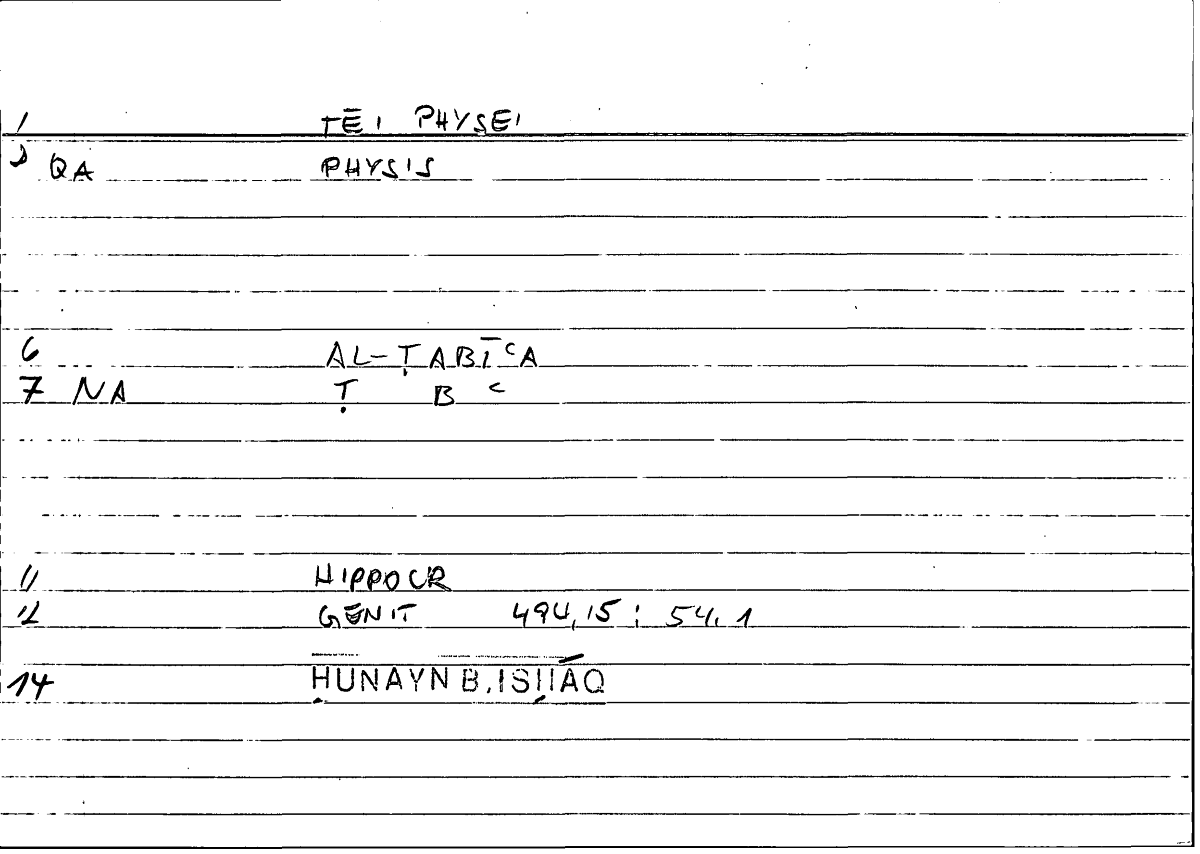 1 TĒI PHYSEI
2 QA PHYSIS
6 AL-ṬABĪʿA
7 NA Ṭ B ʿ
11 HIPPOCR
12 GENIT 494,15 : 54,1
14 ḤUNAYN B. ISḤĀQ